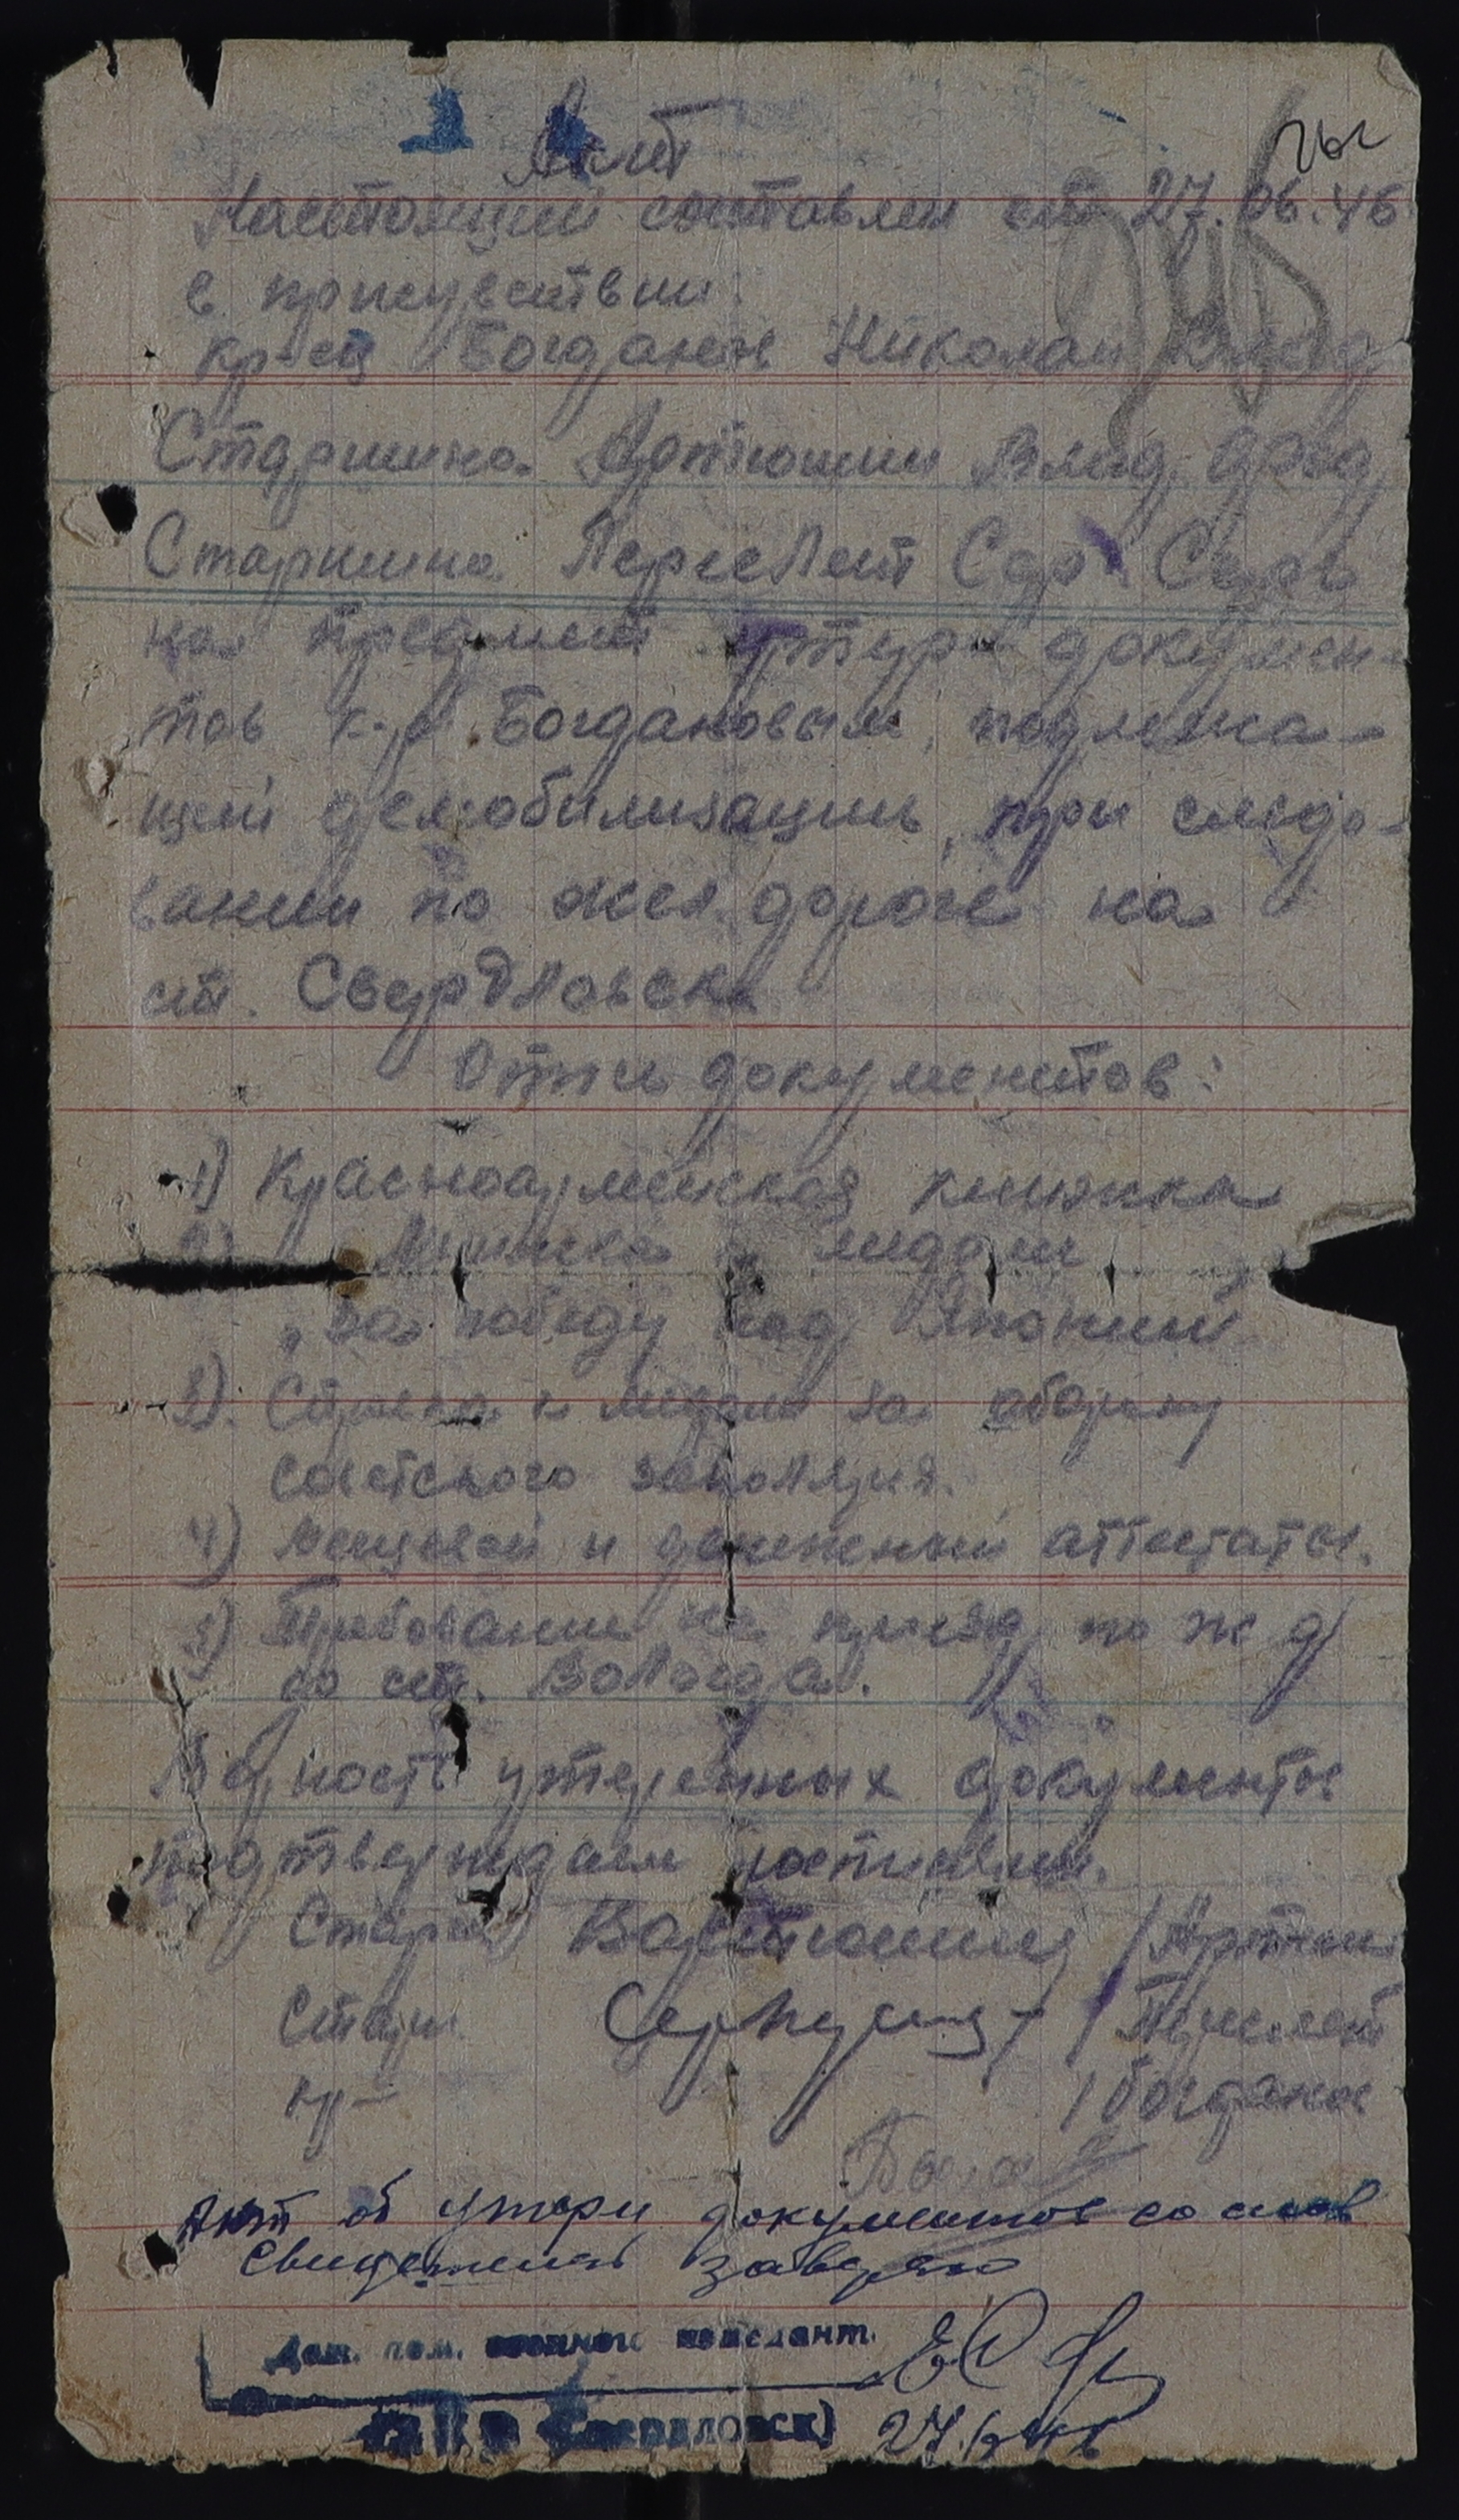 Акт
Настоящий составлен от 27.06.46
в присутствии:
кр-ец Богданов Николай
Старшина Артюшин Влад.
Старшина Пересlет Сер.
на предмет утери докумен-
тов к-р Богдановым, подлежа-
щий демобилизации, при следо-
вании по жел. дороге на
ст. Свердловск
Опись документов:
1) Красноармейская книжка
2) медали
"за победу над Японией
3). к медали за оборону
советского заполярия.
4) Вещевой и денежный аттестаты.
5) Требование на проезд по ж д
до ст. Вологда.
утерянных документы
подтверждаем росписями.
Старш Вартюшин /Артюш
Старш /Переслет
кр- /Богданов
Акт об утери документов со слов
заверяю
Деж. пом. военного комендант.
Свердловск)
27.6.46